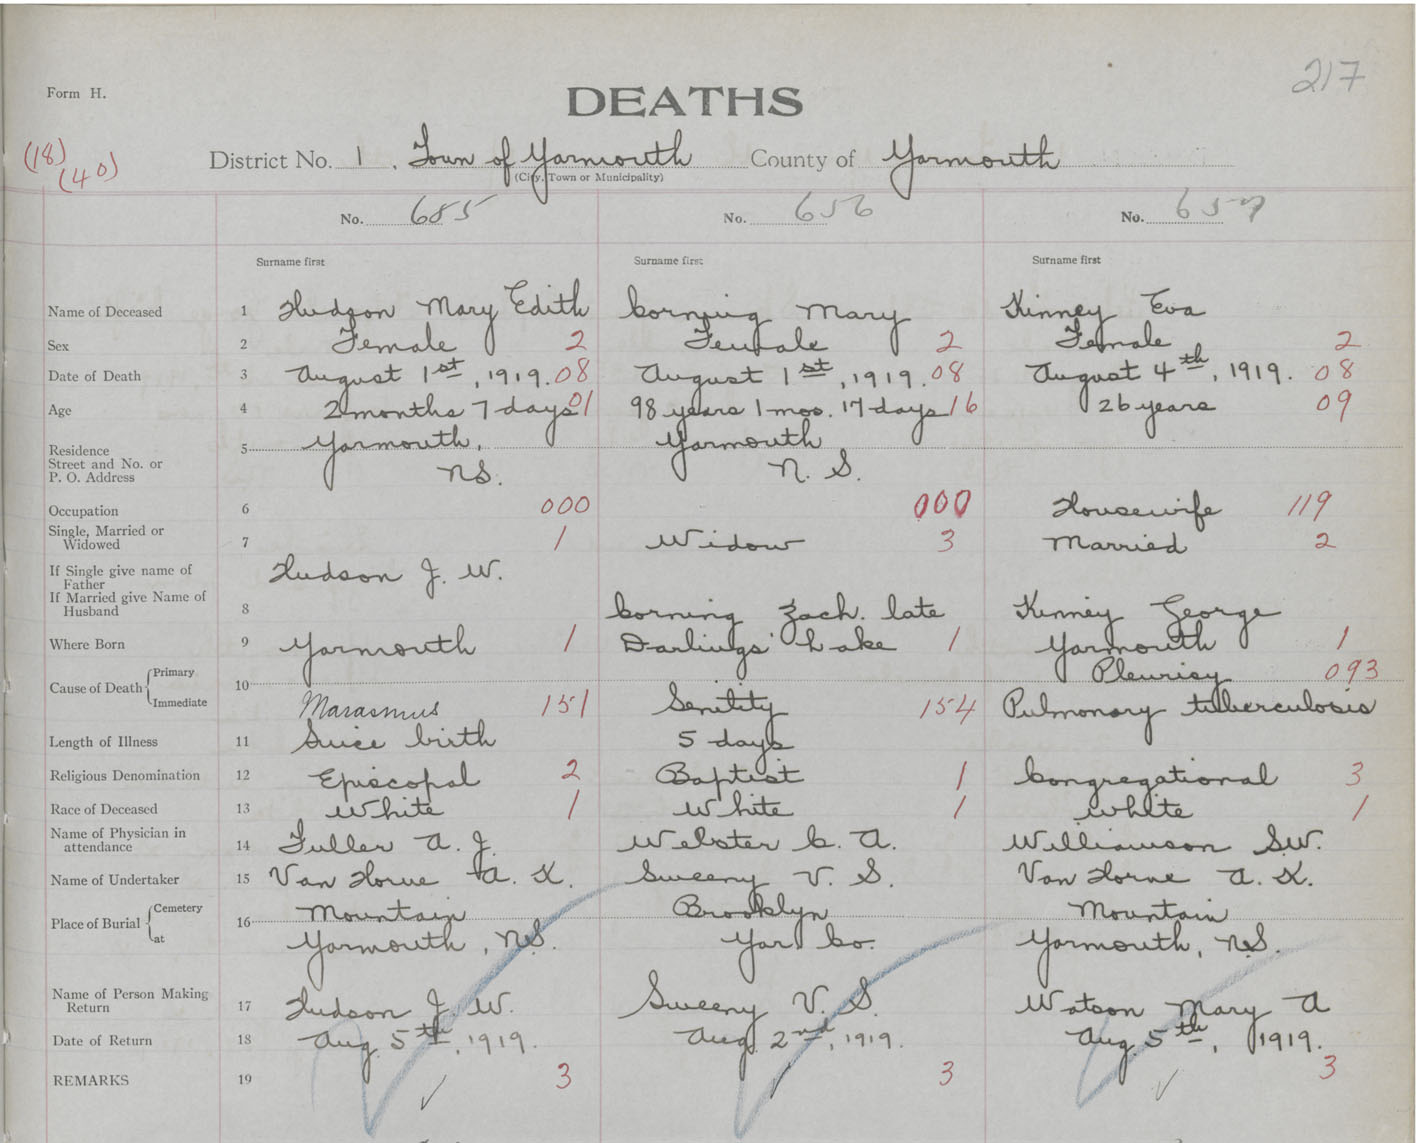 217
Form H.
DEATHS
(18)
(40)
District No. 1, Town of Yarmouth County of Yarmouth
(City, Town or Municipality)
No. 685 No. 656 No. 657
Surname first Surname first Surname first
Name of Deceased 1 Hudson Mary Edith Corning Mary Kinney Eva
Sex 2 Female 2 Female 2 Female 2
Date of Death 3 August 1st, 1919. 08 August 1st, 1919. 08 August 4th, 1919. 08
Age 4 2 months 7 days 01 98 years 1 mos. 17 days 16 26 years 09
Residence Street and No. or P. O. Address 5 Yarmouth, Yarmouth
N.S. N. S.
Occupation 6 000 000 Housewife 119
Single, Married or Widowed 7 1 Widow 3 Married 2
If Single give name of Father Hudson J. W.
If Married give Name of Husband 8 Corning Zach. late Kinney George
Where Born 9 Yarmouth 1 Darlings' Lake 1 Yarmouth 1
Cause of Death Primary 10 Pleurisy 093
Immediate Marasmus 151 Senility 154 Pulmonary tuberculosis
Length of Illness 11 Suice birth 5 days
Religious Denomination 12 Episcopal 2 Baptist 1 Congregational 3
Race of Deceased 13 White 1 White 1 White 1
Name of Physician in attendance 14 Fuller A. J. Webster C. A. Williamson S.W.
Name of Undertaker 15 Van Horne A. K. Sweeny V. S. Van Horne A. K.
Place of Burial Cemetery 16 Mountain Brooklyn Mountain
at Yarmouth, N.S. Yar. Co. Yarmouth, N.S.
Name of Person Making Return 17 Hudson J. W. Sweeny V. S. Watson Mary A
Date of Return 18 Aug. 5th, 1919. Aug. 2nd, 1919. Aug. 5th, 1919.
REMARKS 19 3 3 3